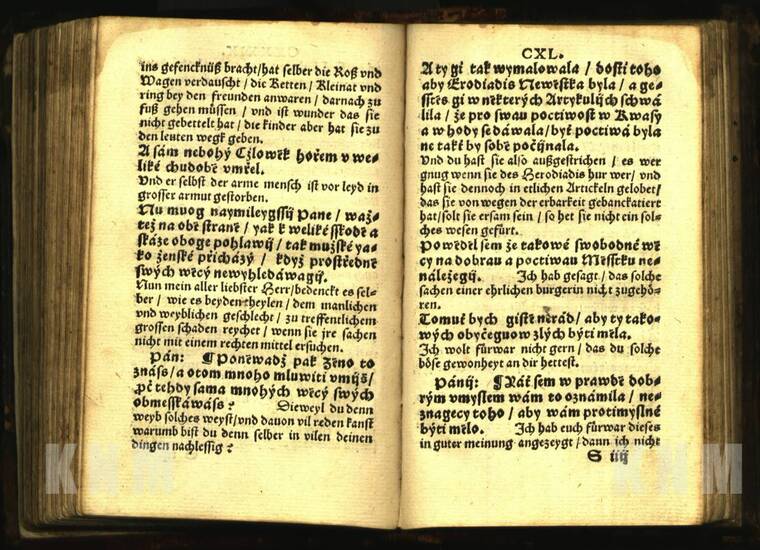 ins gefencknüß bracht/hat selber die Roß vnd
Wagen verdauscht / die Ketten / Kleinat vnd
ring bey den freunden anwaren / darnach zu
fuß gehen müssen / vnd ist wunder das sie
nicht gebettelt hat / die kinder aber hat sie zu
den leuten wegk geben.
A sám nebohý Cžlowěk hořem v we-
liké chudobě vmřel.
Vnd er selbst der arme mensch ist vor leyd in
grosser armut gestorben.
Nu muog naymileygssij Pane / waž-
tež na obě straně / yak k weliké sskodě a
skáze oboge pohlawij / tak mužské ya-
ko ženské přicházý / když prostředně
swých wěcý newyhledáwagij.
Nun mein aller liebster Herr/bedenckt es sel-
ber / wie es beyden theylen / dem manlichen
vnd weyblichen geschlecht / zu treffentlichem
grossen schaden reychet / wenn sie jre sachen
nicht mit einem rechten mittel ersuchen.
Pán: ¶ Poněwadž pak Ženo to
znáss/a otom mnoho mluwiti vmijš/
Pč tehdy sama mnohých wěcý swých
obmesskáwáss? Dieweyl du denn
weyb solches weyst/vnd dauon vil reden kanst
warumb bist du denn selber in vilen deinen
dingen nachlessig?
CXL.
A ty gi tak wymalowala / dosti toho
aby Erodiadis Newěstka byla / a ge-
sstěs gi w některých Artykulijch schwá
lila / že pro swau poctiwost w Kwasy
a w hody se dáwala/byť poctiwá byla
ne takě by sobě počijnala.
Vnd du hast sie also außgestrichen / es wer
gnug wenn sie des Herodiadis hur wer/ vnd
hast sie dennoch in etlichen Artickeln gelobet/
das sie von wegen der erbarkeit gebanckatiert
hat/solt sie ersam sein / so het sie nicht ein sol-
ches wesen gefürt.
Powěděl sem že takowé swobodné wě
cy na dobrau a poctiwau Měsstku ne-
náležegij. Ich hab gesagt / das solche
sachen einer ehrlichen burgerin nicht zugehö-
ren.
Tomuť bych gistě nerád/ aby ty tako-
wých obyčeguow zlých býti měla.
Ich wolt fürwar nicht gern / das du solche
böse gewonheyt an dir hettest.
Panij: ¶ Náč sem w prawdě dob-
rým vmyslem wám to oznámila / ne-
znagecy toho / aby wám protimyslné
býti mělo. Ich hab euch fürwar dieses
in guter meinung angezeygt / dann ich nicht
S iiij
KNM
KNM